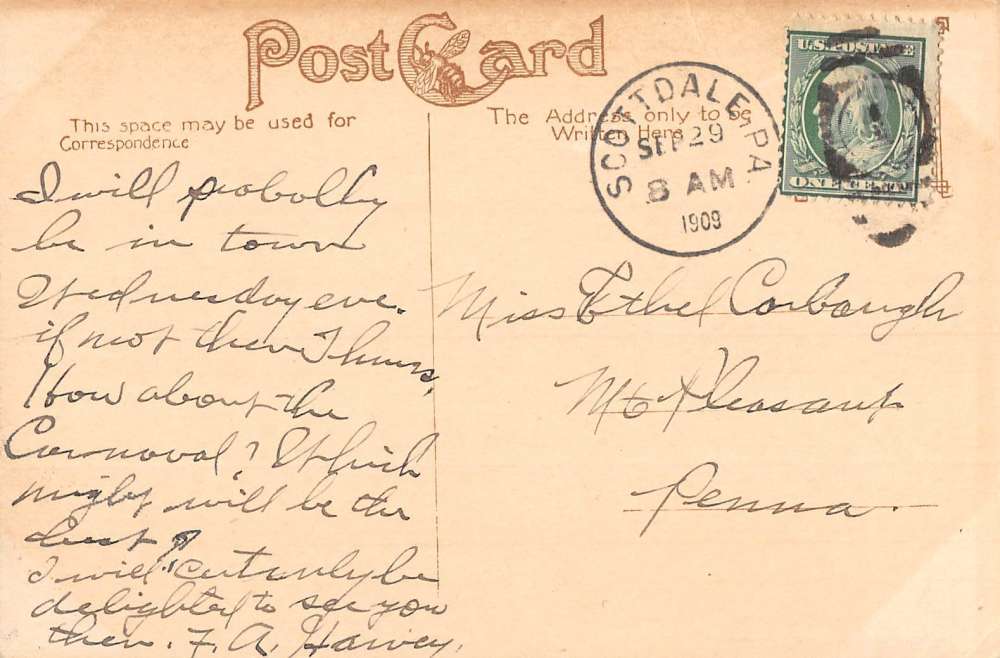 Post Card
This space may be used for
Correspondence
The Address only to be
Written Here
SCOTTDALE, PA
SEP 29
8 AM
1909
U.S. POSTAGE
ONE CENT
I will probolly
be in town
Wednesday eve.
if not then Thurs,
How about the
Carnaval? Which
night will be the
best?
I will certainly be
delighted to see you
then. F. A. Harvey.
Miss Ethel Carbaugh
Mt Pleasant
Penna.